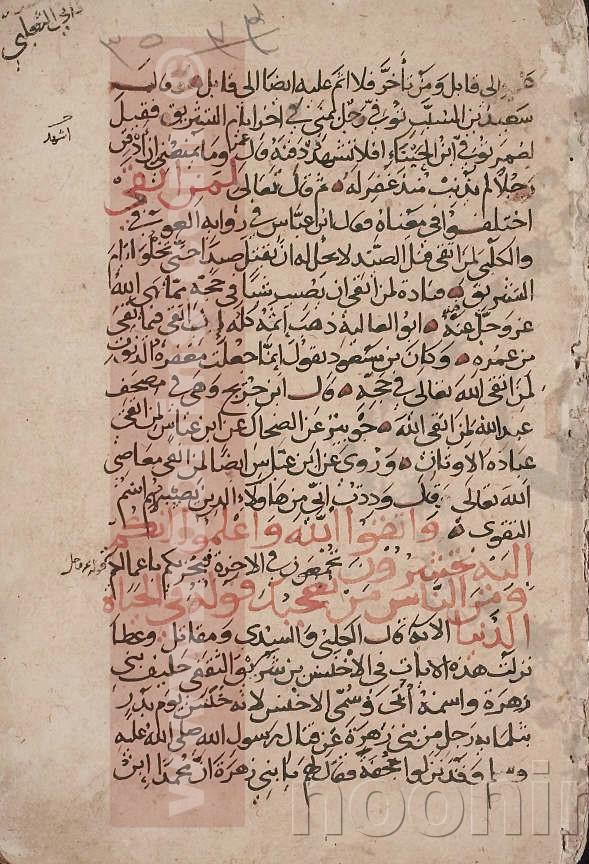 الى قابل ومن تأخر فلا اثم عليه ايضا الى قابل وقال
سعيد بن المسيب توفي رجل بمنى في اخر ايام التشريق فقيل
لعمر توفي ابن الخنساء افلا تشهد دفنه قال عمر وما يمنعني ان ادفن
رجلا لم يذنب منذ غفر له ثم قال تعالى لمن اتقى
اختلفوا في معناه فقال ابن عباس في رواية العوفي
والكلبي لمن اتقى قتل الصيد لا يحل له ان يقتل صيدا حتى تخلوا ايام
التشريق قتادة لمن اتقى ان يصيب شيئا في حجه مما نهى الله
عز وجل عنه ابو العالية ذهب اثمه كله ان اتقى فيما بقي
من عمره وكان بن مسعود يقول انما جعلت مغفرة الذنوب
لمن اتقى الله تعالى في حجه قال ابن جريج وهي في مصحف
عبد الله لمن اتقى الله جويبر عن الضحاك عن ابن عباس لمن اتقى
عبادة الاوثان وروى عن ابن عباس ايضا لمن اتقى معاصي
الله تعالى قال وددت اني من هاولاء الذين يصيبهم اسم
التقوى واتقوا الله واعلموا انكم
اليه تحشرون تجمعون في الاخرة فيجزيكم باعمالكم
ومن الناس من يعجبك قوله في الحياة
الدنيا الاية قال الكلبي والسدي ومقاتل وعطا
نزلت هذه الايات في الاخنس بن شريق الثقفي حليف بني
زهرة واسمه أبي وسمي الاخنس لانه خنس يوم بدر
بثلمائة رجل من بني زهرة عن قتال رسول الله صلى الله عليه
وسلم وقد نزلوا الجحفة فقال لهم يا بني زهرة ان محمدا ابن
اشهد
noorin